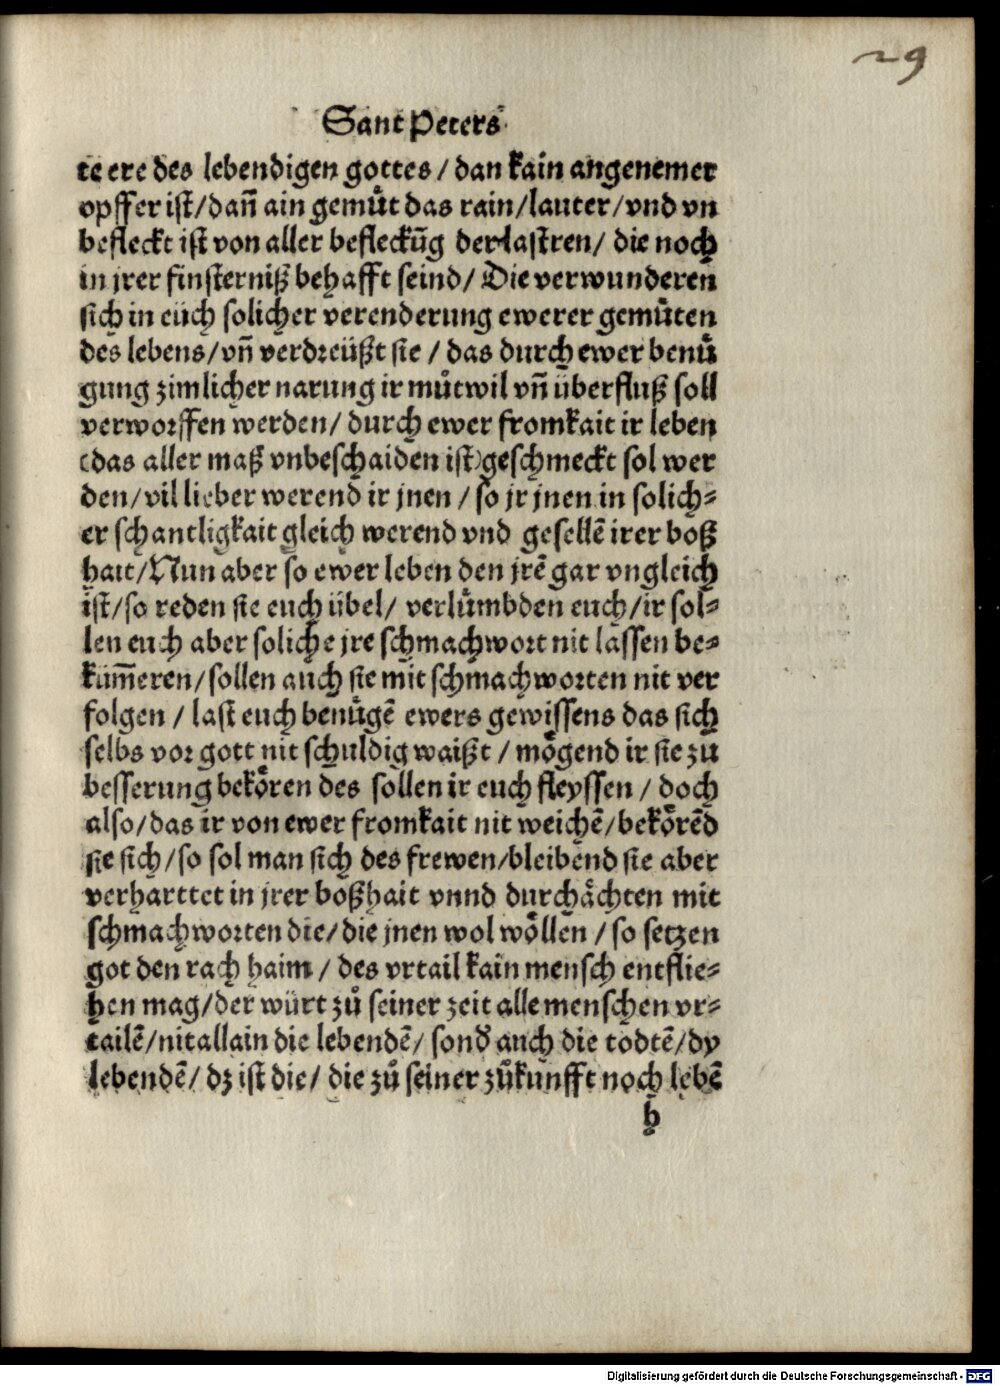 29
Sant Peters
te ere des lebendigen gottes / dan kain angenemer
opffer ist/dañ ain gemuͤt das rain/lauter/vnd vn
befleckt ist von aller befleckūg der lastren/ die noch
in jrer finsterniß behafft seind/ Die verwunderen
sich in eüch solicher verenderung ewerer gemuͤten
des lebens/vñ verdreüßt sie / das durch ewer benuͤ
gung zimlicher narung ir muͤtwil vñ überfluß soll
verworffen werden/ durch ewer fromkait ir leben
(das aller maß vnbeschaiden ist)geschmeckt sol wer
den/vil lieber werend ir jnen / so jr jnen in solich⸗
er schantligkait gleich werend vnd gesellē irer boß
hait/Nun aber so ewer leben den jrē gar vngleich
ist/so reden sie euch übel/ verluͤmbden euch/ir sol⸗
len euch aber soliche jre schmachwort nit lassen be⸗
kūmeren/sollen auch sie mit schmachworten nit ver
folgen / last euch benuͤgē ewers gewissens das sich
selbs vor gott nit schuldig waißt / moͤgend ir sie zu
besserung bekoͤren des sollen ir euch fleyssen / doch
also/das ir von ewer fromkait nit weichē/bekoͤrēd
sie sich/so sol man sich des frewen/bleibend sie aber
verharttet in jrer boßhait vnnd durchaͤchten mit
schmachworten die/die jnen wol woͤllen / so setzen
got den rach haim / des vrtail kain mensch entflie⸗
hen mag/der würt zuͦ seiner zeit alle menschen vr⸗
tailē/nit allain die lebendē/ sond̕ auch die todtē/dy
lebendē/ dz ist die/ die zuͦ seiner zuͦkunfft noch lebē
h
Digitalisierung gefördert durch die Deutsche Forschungsgemeinschaft - DFG